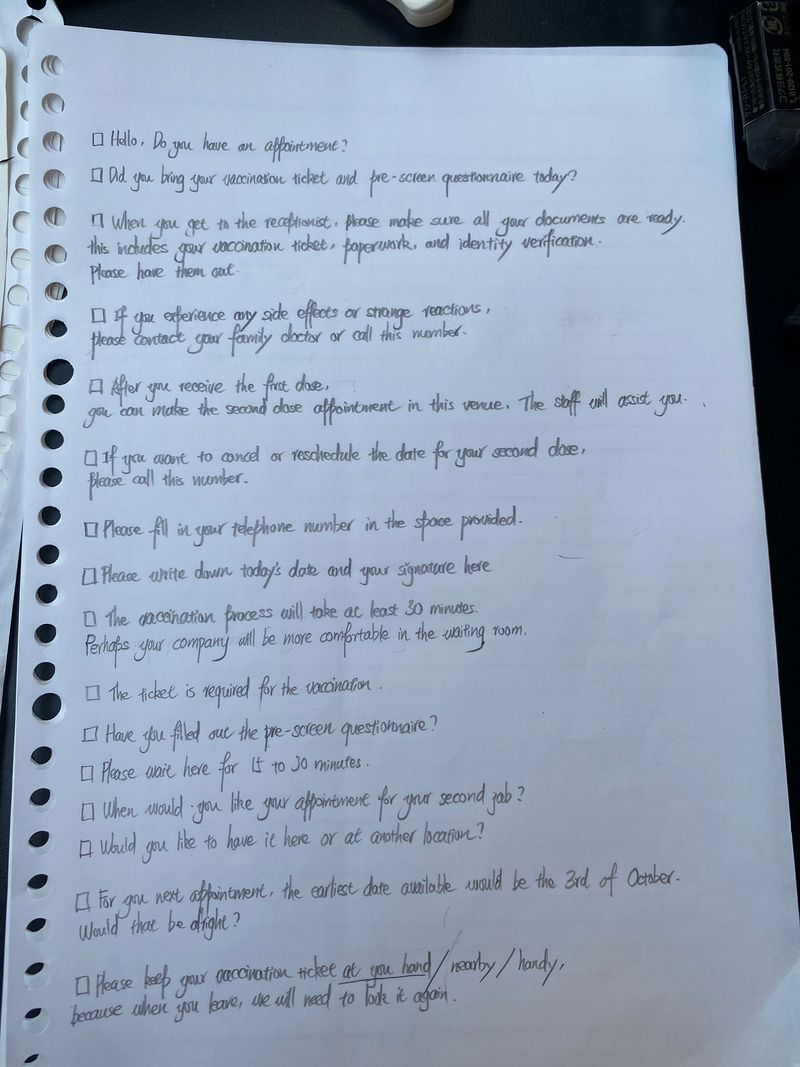 □ Hello, Do you have an appointment?
□ Did you bring your vaccination ticket and pre-screen questionnaire today?
□ When you get to the receptionist, please make sure all your documents are ready.
this includes your vaccination ticket, paperwork, and identity verification.
Please have them out.
□ If you experience any side effects or strange reactions,
please contact your family doctor or call this number.
□ After you receive the first dose,
you can make the second dose appointment in this venue. The staff will assist you.
□ If you want to cancel or reschedule the date for your second dose,
please call this number.
□ Please fill in your telephone number in the space provided.
□ Please write down today's date and your signature here
□ The vaccination process will take at least 30 minutes.
Perhaps your company will be more comfortable in the waiting room.
□ The ticket is required for the vaccination.
□ Have you filled out the pre-screen questionnaire?
□ Please wait here for 15 to 30 minutes.
□ When would you like your appointment for your second jab?
□ Would you like to have it here or at another location?
□ For you next appointment, the earliest date available would be the 3rd of October.
Would that be alright?
□ Please keep your vaccination ticket at you hand/nearby/handy,
because when you leave, we will need to look it again.
コクヨ株式会社
0120-201-594